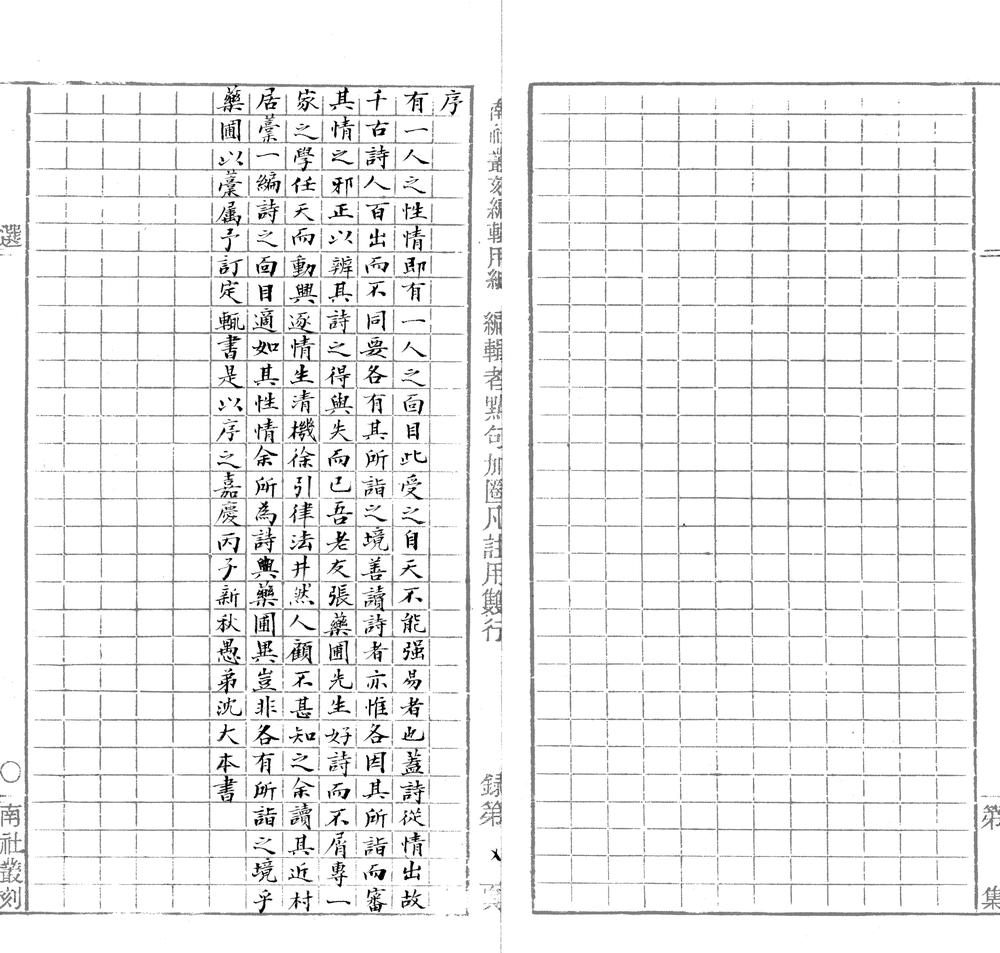 第　集
南社叢刻編輯用紙　編輯者點句加圈凡註用雙行
錄第　集
序
有一人之性情即有一人之面目此受之自天不能强易者也蓋詩從情出故
千古詩人百出而不同要各有其所詣之境善讀詩者亦惟各因其所詣而審
其情之邪正以辨其詩之得與失而已吾老友張藥圃先生好詩而不屑專一
家之學任天而動興逐情生清機徐引律法井然人顧不甚知之余讀其近村
居藁一編詩之面目適如其性情余所為詩與藥圃異豈非各有所詣之境乎
藥圃以藁属予訂定輒書是以序之嘉慶丙子新秋愚弟沈大本書
選　〇南社叢刻